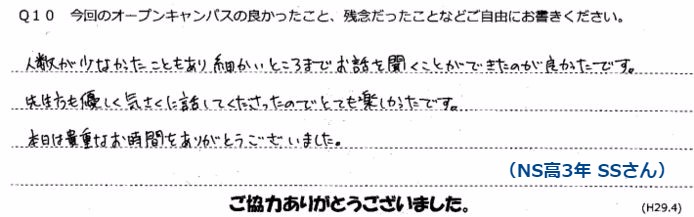 Q10　今回のオープンキャンパスの良かったこと、残念だったことなどご自由にお書きください。
人数が少なかったこともあり細かいところまでお話を聞くことができたのが良かったです。
先生方も優しく気さくに話してくださったのでとても楽しかったです。
本日は貴重なお時間をありがとうございました。
（NS高3年 SSさん）
ご協力ありがとうございました。
(H29.4)